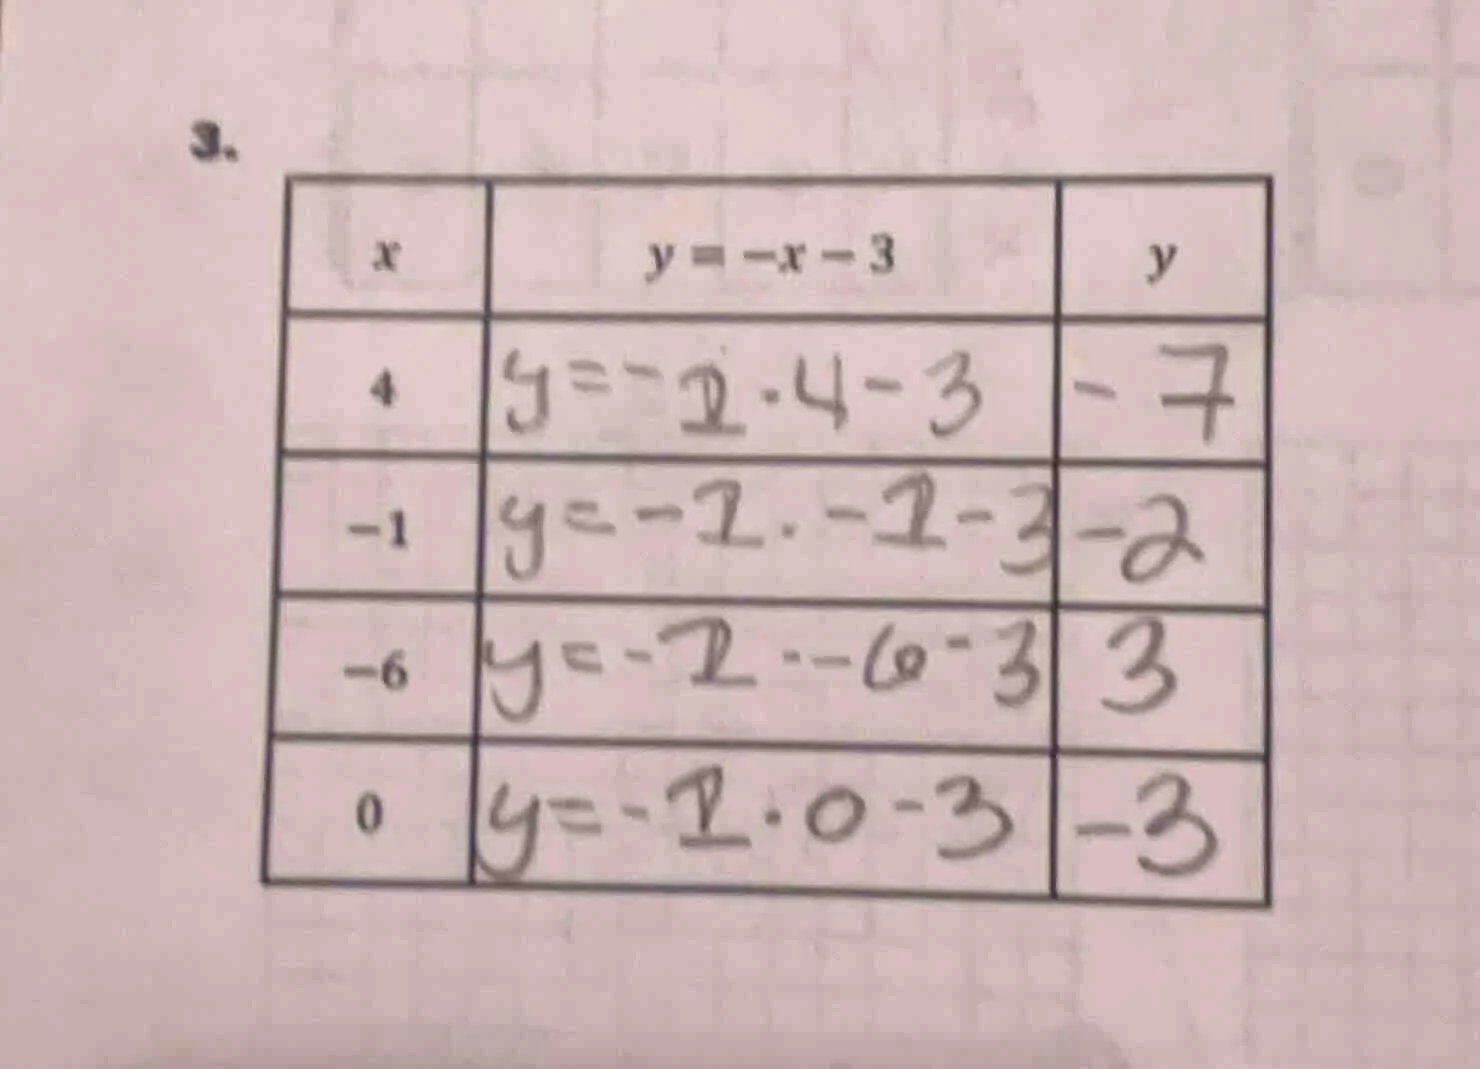 3.
x y = −x − 3 y
4 y = - 1 · 4 - 3 - 7
−1 y = - 1 · - 1 - 3 - 2
−6 y = - 1 · - 6 - 3 3
0 y = - 1 · 0 - 3 - 3